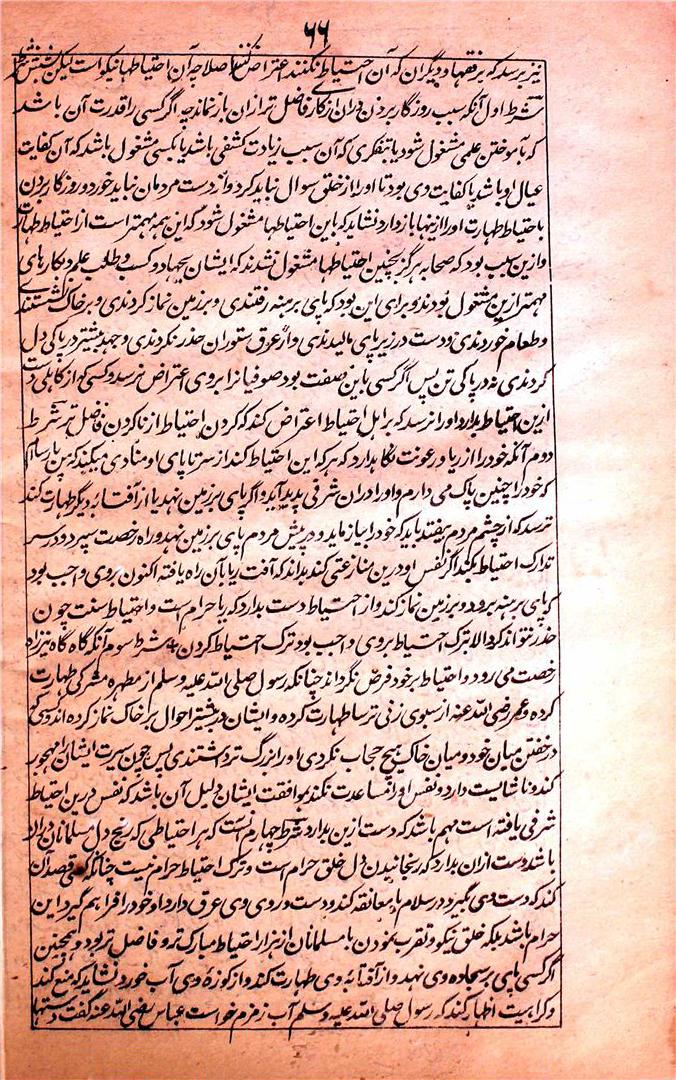 ۶۶
نیز برسد که بر فقها و دیگران که آن احتیاط نکنند اعتراض کنند اصلا چه آن احتیاطها نیکو است لیکن بشش شرط
شرط اول آنکه سبب روزگار بردن دران از کاری فاضل تر ازان باز نماند چه اگر کسی را قدرت آن باشد
که بآموختن علمی مشغول شود یا بتفکری که آن سبب زیادت کشفی باشد یا بکسبی مشغول باشد که آن کفایت
عیال او باشد یا کفایت وی بود تا او را از خلق سوال نباید کرد و از دست مردمان نباید خورد و روزگار بردن
باحتیاط طهارت او را ازینها باز دارد نشاید که باین احتیاطها مشغول شود که این همه مهمتر است از احتیاط طهارت
و ازین سبب بود که صحابه هرگز بچنین احتیاطها مشغول نشدند که ایشان بجهاد و کسب و طلب علم و بکارهای
مهمتر ازین مشغول بودند و برای این بود که پای برهنه رفتندی و بر زمین نماز کردندی و بر خاک نشستندی
و طعام خوردندی و دست در زیر پای مالیدندی و از عرق ستوران حذر نکردندی و جهد بیشتر در پاکی دل
کردندی نه در پاکی تن پس اگر کسی باین صفت بود صوفیانرا بر وی اعتراض نرسد و کسی که از کاهلی دست
ازین احتیاط بدارد او را نرسد که بر اهل احتیاط اعتراض کند که کردن احتیاط از ناکردن فاضل تر شرط
دوم آنکه خود را از ریا و رعونت نگاه بدارد که هر که این احتیاط کند از سر تا پای او منادی میکند که من پارساام
که خود را چنین پاک می دارم و او را دران شرفی پدید آید و اگر پای بر زمین نهد یا از آفتابه دیگر طهارت کند
ترسد که از چشم مردم بیفتد باید که خود را بیازماید و در پیش مردم پای بر زمین نهد و راه رخصت سپرد و در سر
تدارک احتیاط بکند اگر نفس او درین منازعتی کند بداند که آفت ریا بآن راه یافته اکنون بر وی واجب بود
که پای برهنه برود و بر زمین نماز کند و از احتیاط دست بدارد که ریا حرام است و احتیاط سنت چون
حذر نتواند کرد الا بترک احتیاط بر وی واجب بود ترک احتیاط کردن شرط سوم آنکه گاه گاه نیز راه
رخصت می رود و احتیاط بر خود فرض نگرداند چنانکه رسول صلی الله علیه و سلم از مطهره مشرکی طهارت
کرده و عمر رضی الله عنه از سبوی زنی ترسا طهارت کرده و ایشان در بیشتر احوال بر خاک نماز کرده اند و کسی که
در خفتن میان خود و میان خاک هیچ حجاب نکردی او را بزرگ تر داشتندی پس چون سیرت ایشان را مهجور
کند و ناشایست دارد و نفس او مساعدت نکند بموافقت ایشان دلیل آن باشد که نفس درین احتیاط
شرفی یافته است مهم باشد که دست ازین بدارد شرط چهارم آنست که هر احتیاطی که رنج دل مسلمانان دران
باشد دست ازان بدارد که رنجانیدن دل خلق حرام است و ترک احتیاط حرام نیست چنانکه کسی قصد آن
کند که دست وی بگیرد در سلام یا معانقه کند و دست و روی وی عرق دارد او خود را فراهم گیرد این
حرام باشد بلکه خلق نیکو و تقرب نمودن با مسلمانان از هزار احتیاط مبارک تر و فاضل تر بود و همچنین
اگر کسی پای بر سجاده وی نهد و از آفتابه وی طهارت کند و از کوزه وی آب خورد نشاید که منع کند
و کراهیت اظهار کند که رسول صلی الله علیه و سلم آب زمزم خواست عباس رضی الله عنه گفت دستها